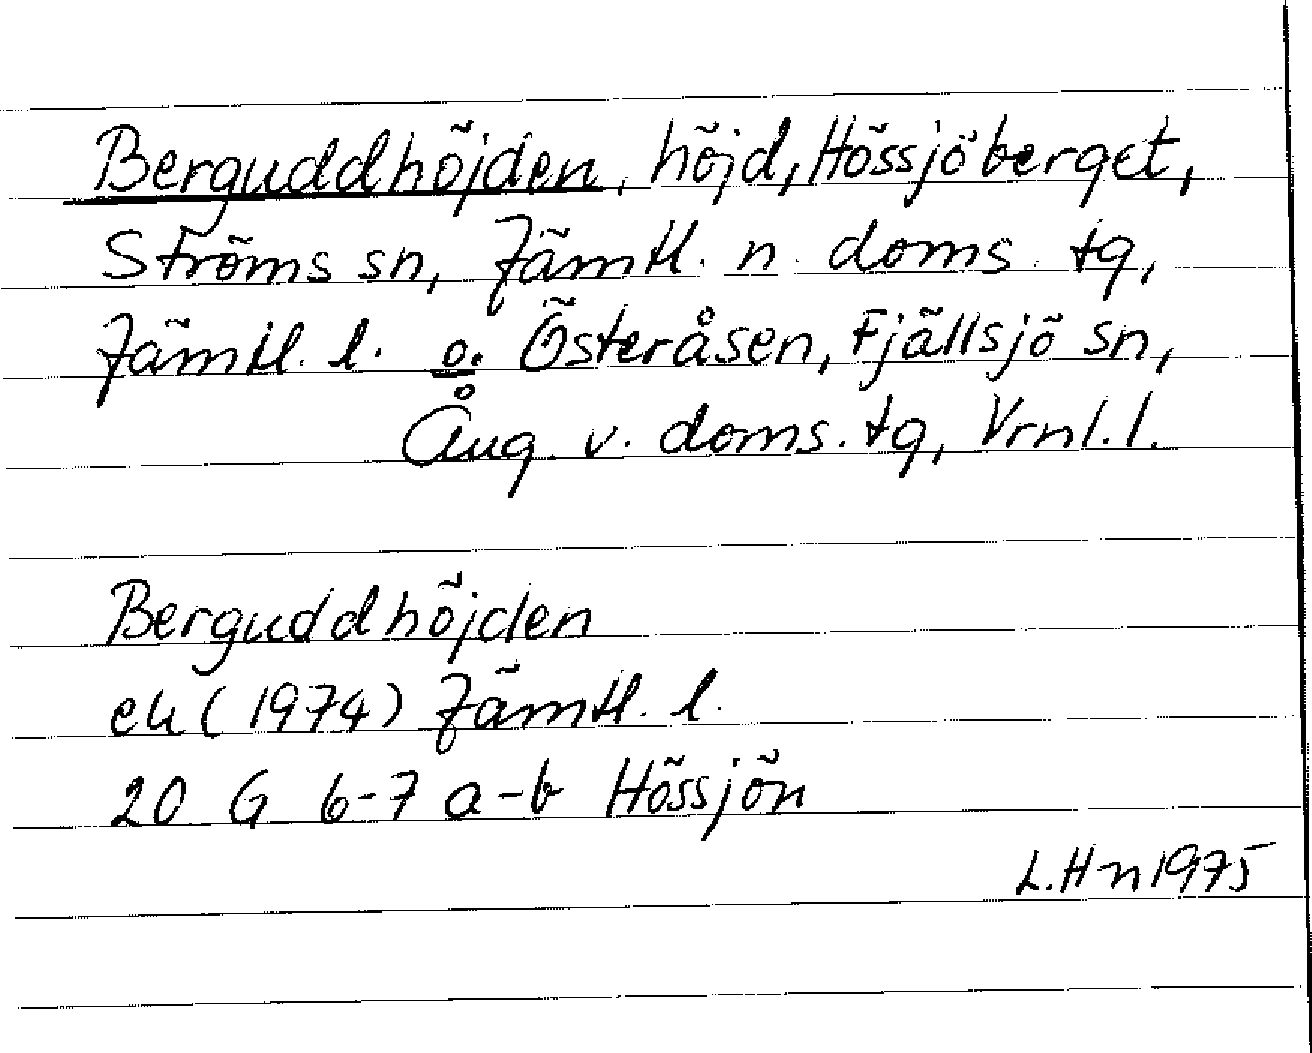 Berguddhöjden, höjd, Hössjöberget,
Ströms sn, Jämtl. n. doms. tg,
Jämtl. l. o. Österåsen, Fjällsjö sn,
Ång. v. doms. tg, Vrnl. l.
Berguddhöjden
ek (1974) Jämtl. l.
20 G 6-7 a-b Hössjön
L.Hn 1975